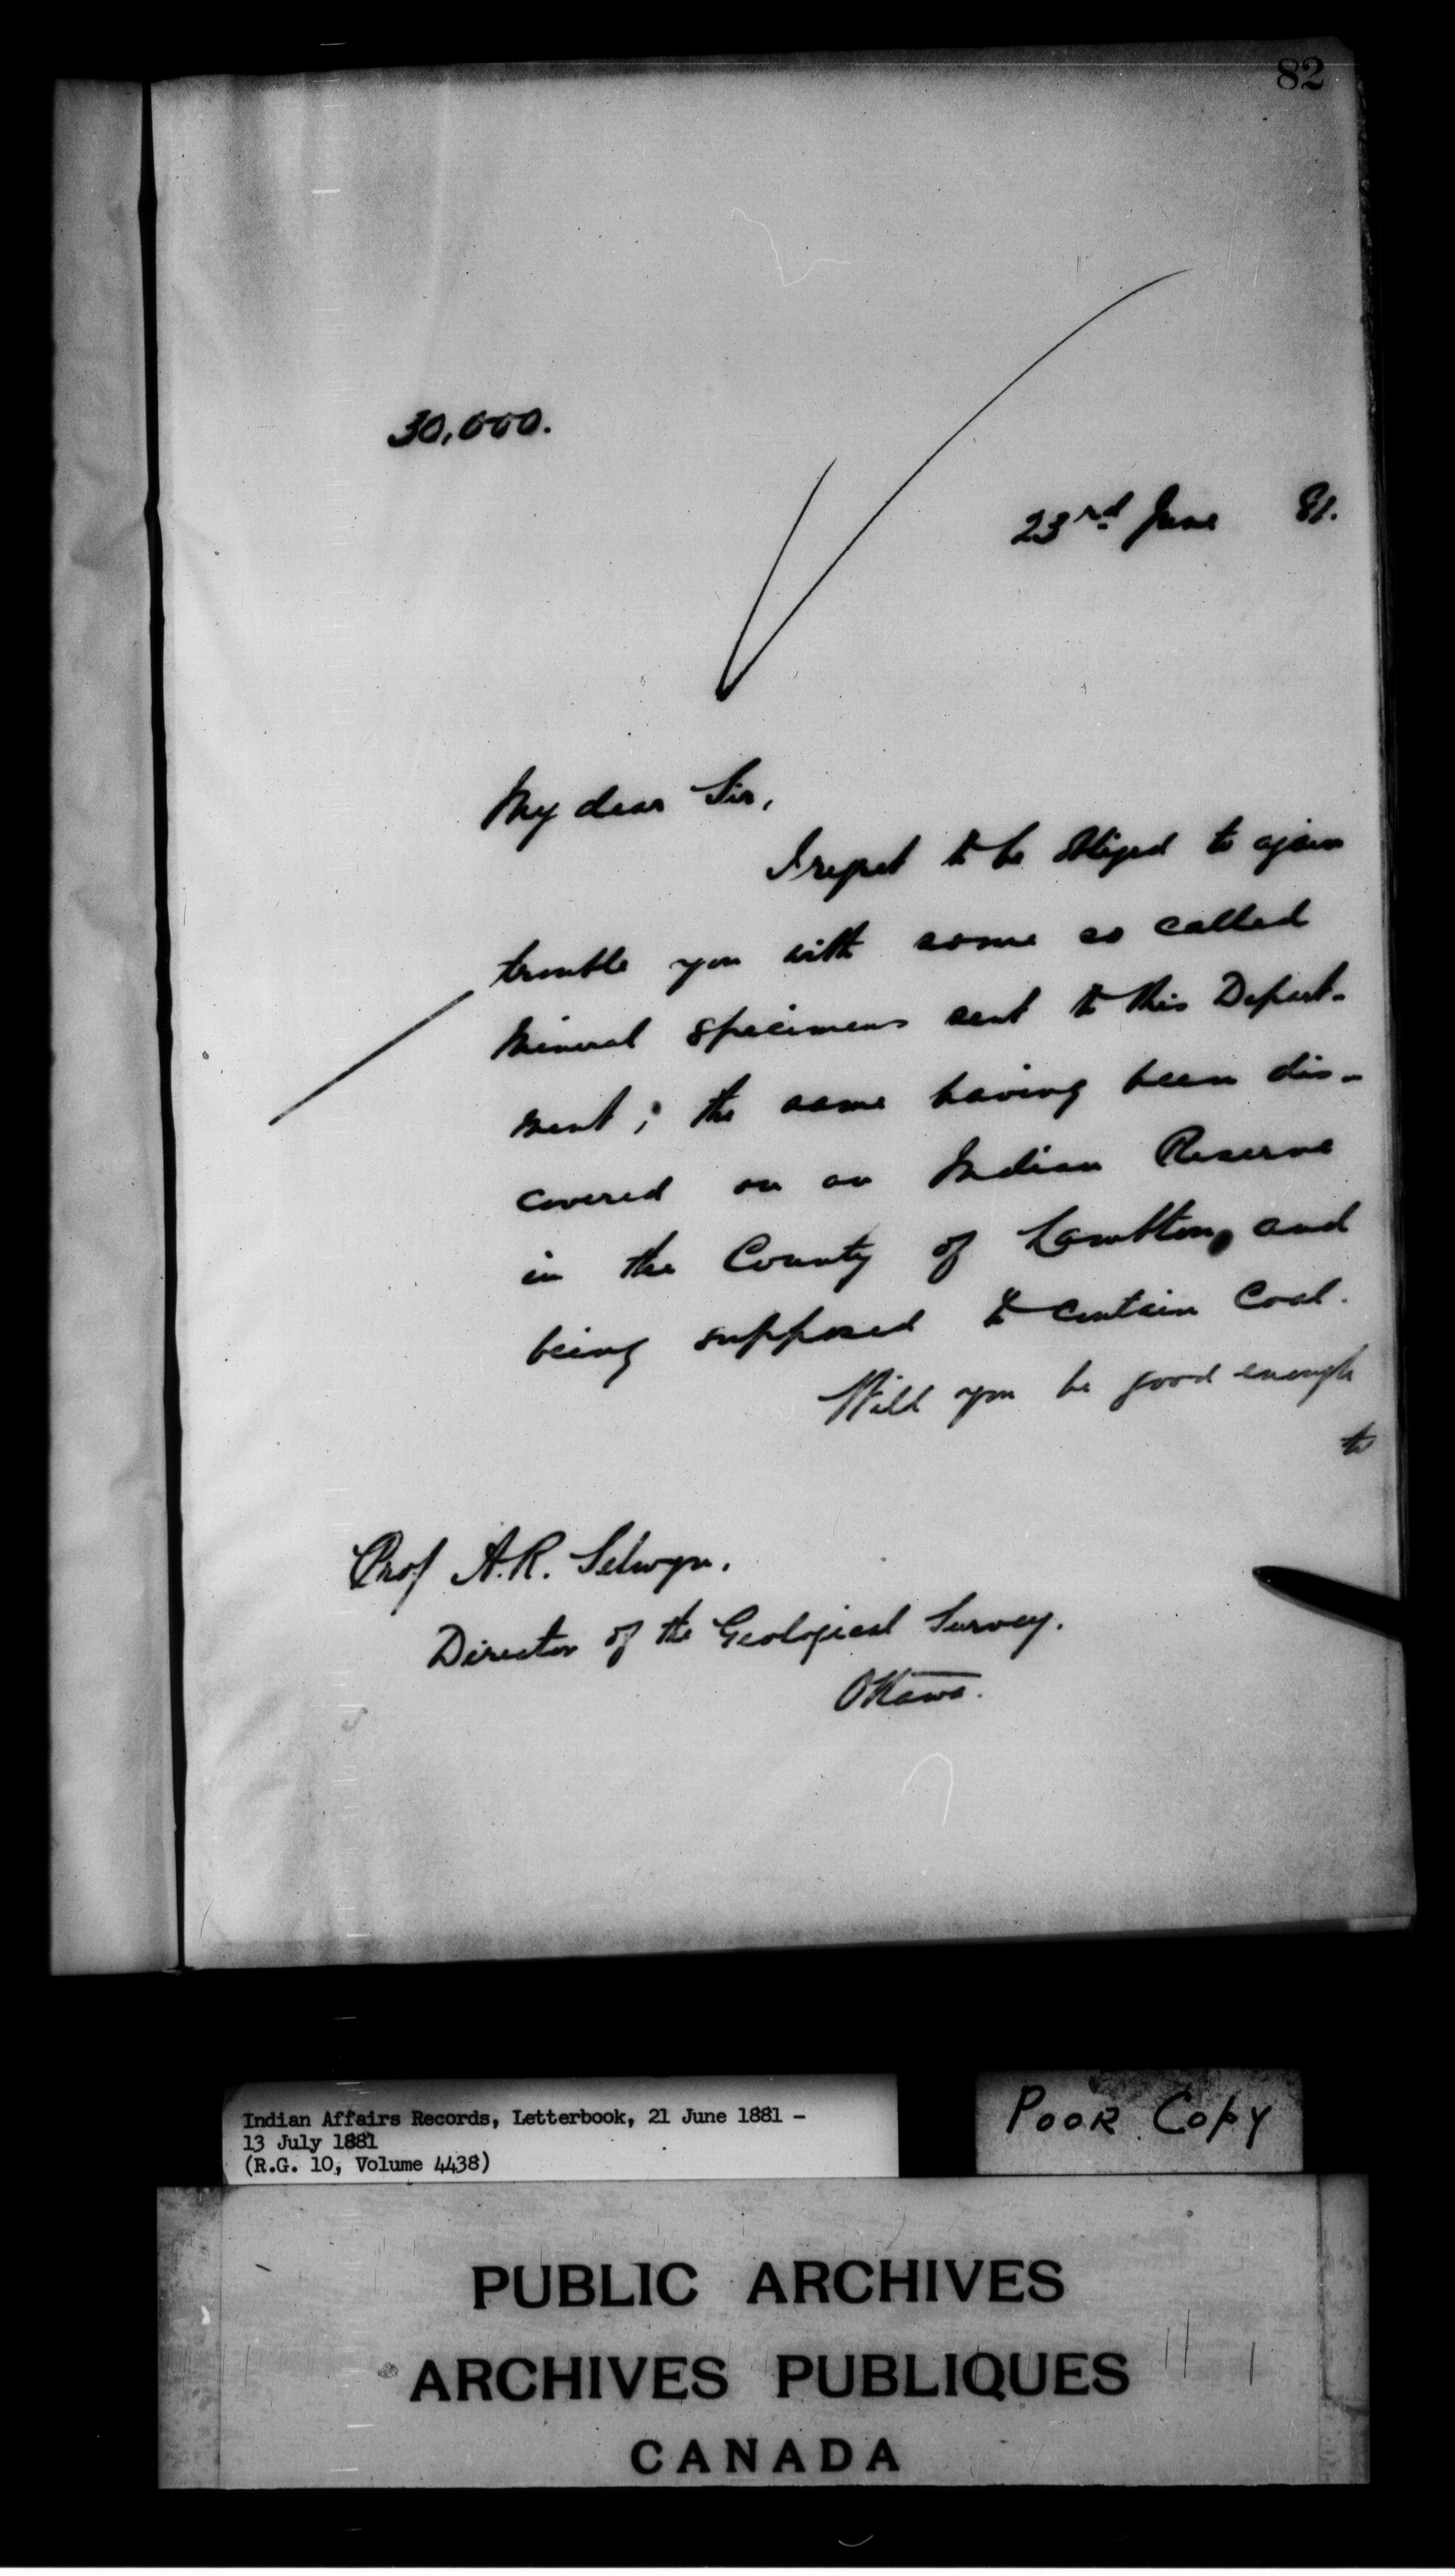 82
30,000.
23rd June 81.
My dear Sir,
I regret to be obliged to again
trouble you with some so called
Mineral specimens sent to this Depart-
ment; the same having been dis-
covered on an Indian Reserve
in the County of Lambton, and
being supposed to contain Coal.
Will you be good enough
to
Prof A.R. Selwyn.
Director of the Geological Survey.
Ottawa.
Indian Affairs Records, Letterbook, 21 June 1881 -
13 July 1881
(R.G. 10, Volume 4438)
POOR COPY
PUBLIC ARCHIVES
ARCHIVES PUBLIQUES
CANADA